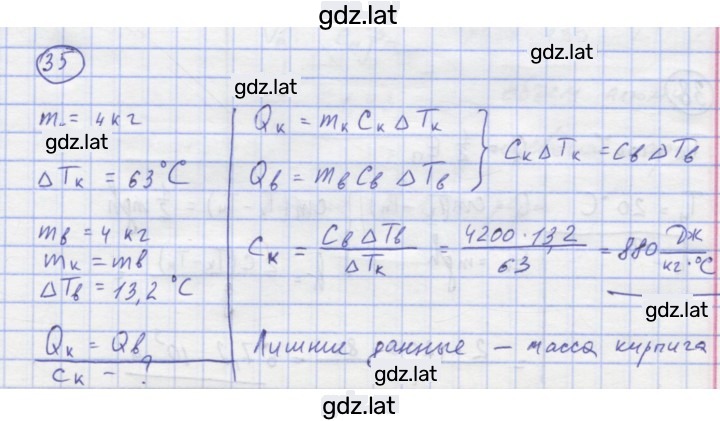 gdz.lat
35
gdz.lat
gdz.lat
m = 4 кг
gdz.lat
ΔTк = 63°C
mв = 4 кг
mк = mв
ΔTв = 13,2 °C
Qк = Qв
cк - ?
Qк = mк Cк ΔTк
Qв = mв Cв ΔTв
} CкΔTк = CвΔTв
Cк = Cв ΔTв / ΔTк = 4200 · 13,2 / 63 = 880 Дж / кг·°C
gdz.lat
Лишние данные – масса кирпича
gdz.lat
gdz.lat